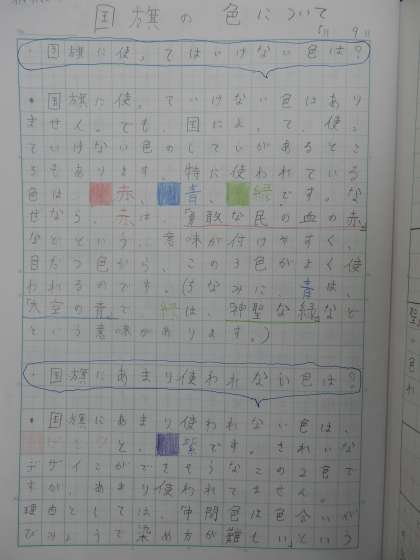 国旗の色について
5月 9日
・国旗に使ってはいけない色は?
・国旗に使っていけない色はあり
ません。でも、国によって、使っ
ていけない色のしていがあるとこ
ろもあります。特に使われている
色は 赤、 青、 緑です。な
ぜなら、赤は、「勇敢な民の血の赤」
などという、意味が付けやすく、
目だつ色から、この3色がよく使
われるのです。(ちなみに、青は、
「大空の青」で 緑は、「神聖な緑」など
という意味があります。)
・国旗にあまり使われない色は?
・国旗にあまり使われない色は、
と、 紫です。きれいな
デザインができそうなこの2色で
すが、あまり使われてません。
理由としては、「中間色は色合いが
びみょうで染め方が難しい」という